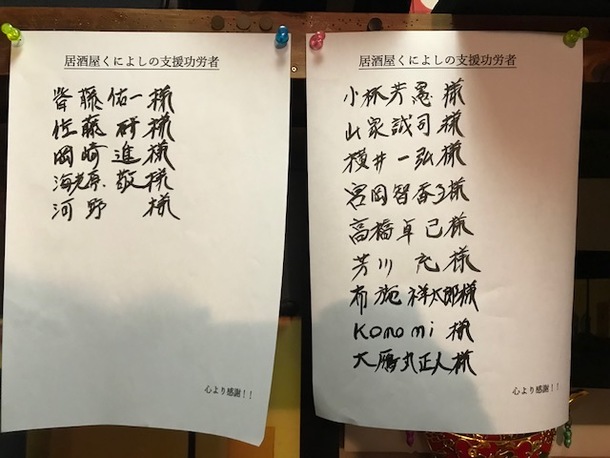 居酒屋くによしの支援功労者
齋藤佑一様
佐藤 研様
岡崎 進様
海老原 敬様
河野 様
心より感謝！！
居酒屋くによしの支援功労者
小林芳愚 様
山泉誠司様
横井一弘様
宮岡智香子様
高橋卓己様
芳川 充様
布施祥太郎様
Konomi 様
大鷹丸正人様
心より感謝！！